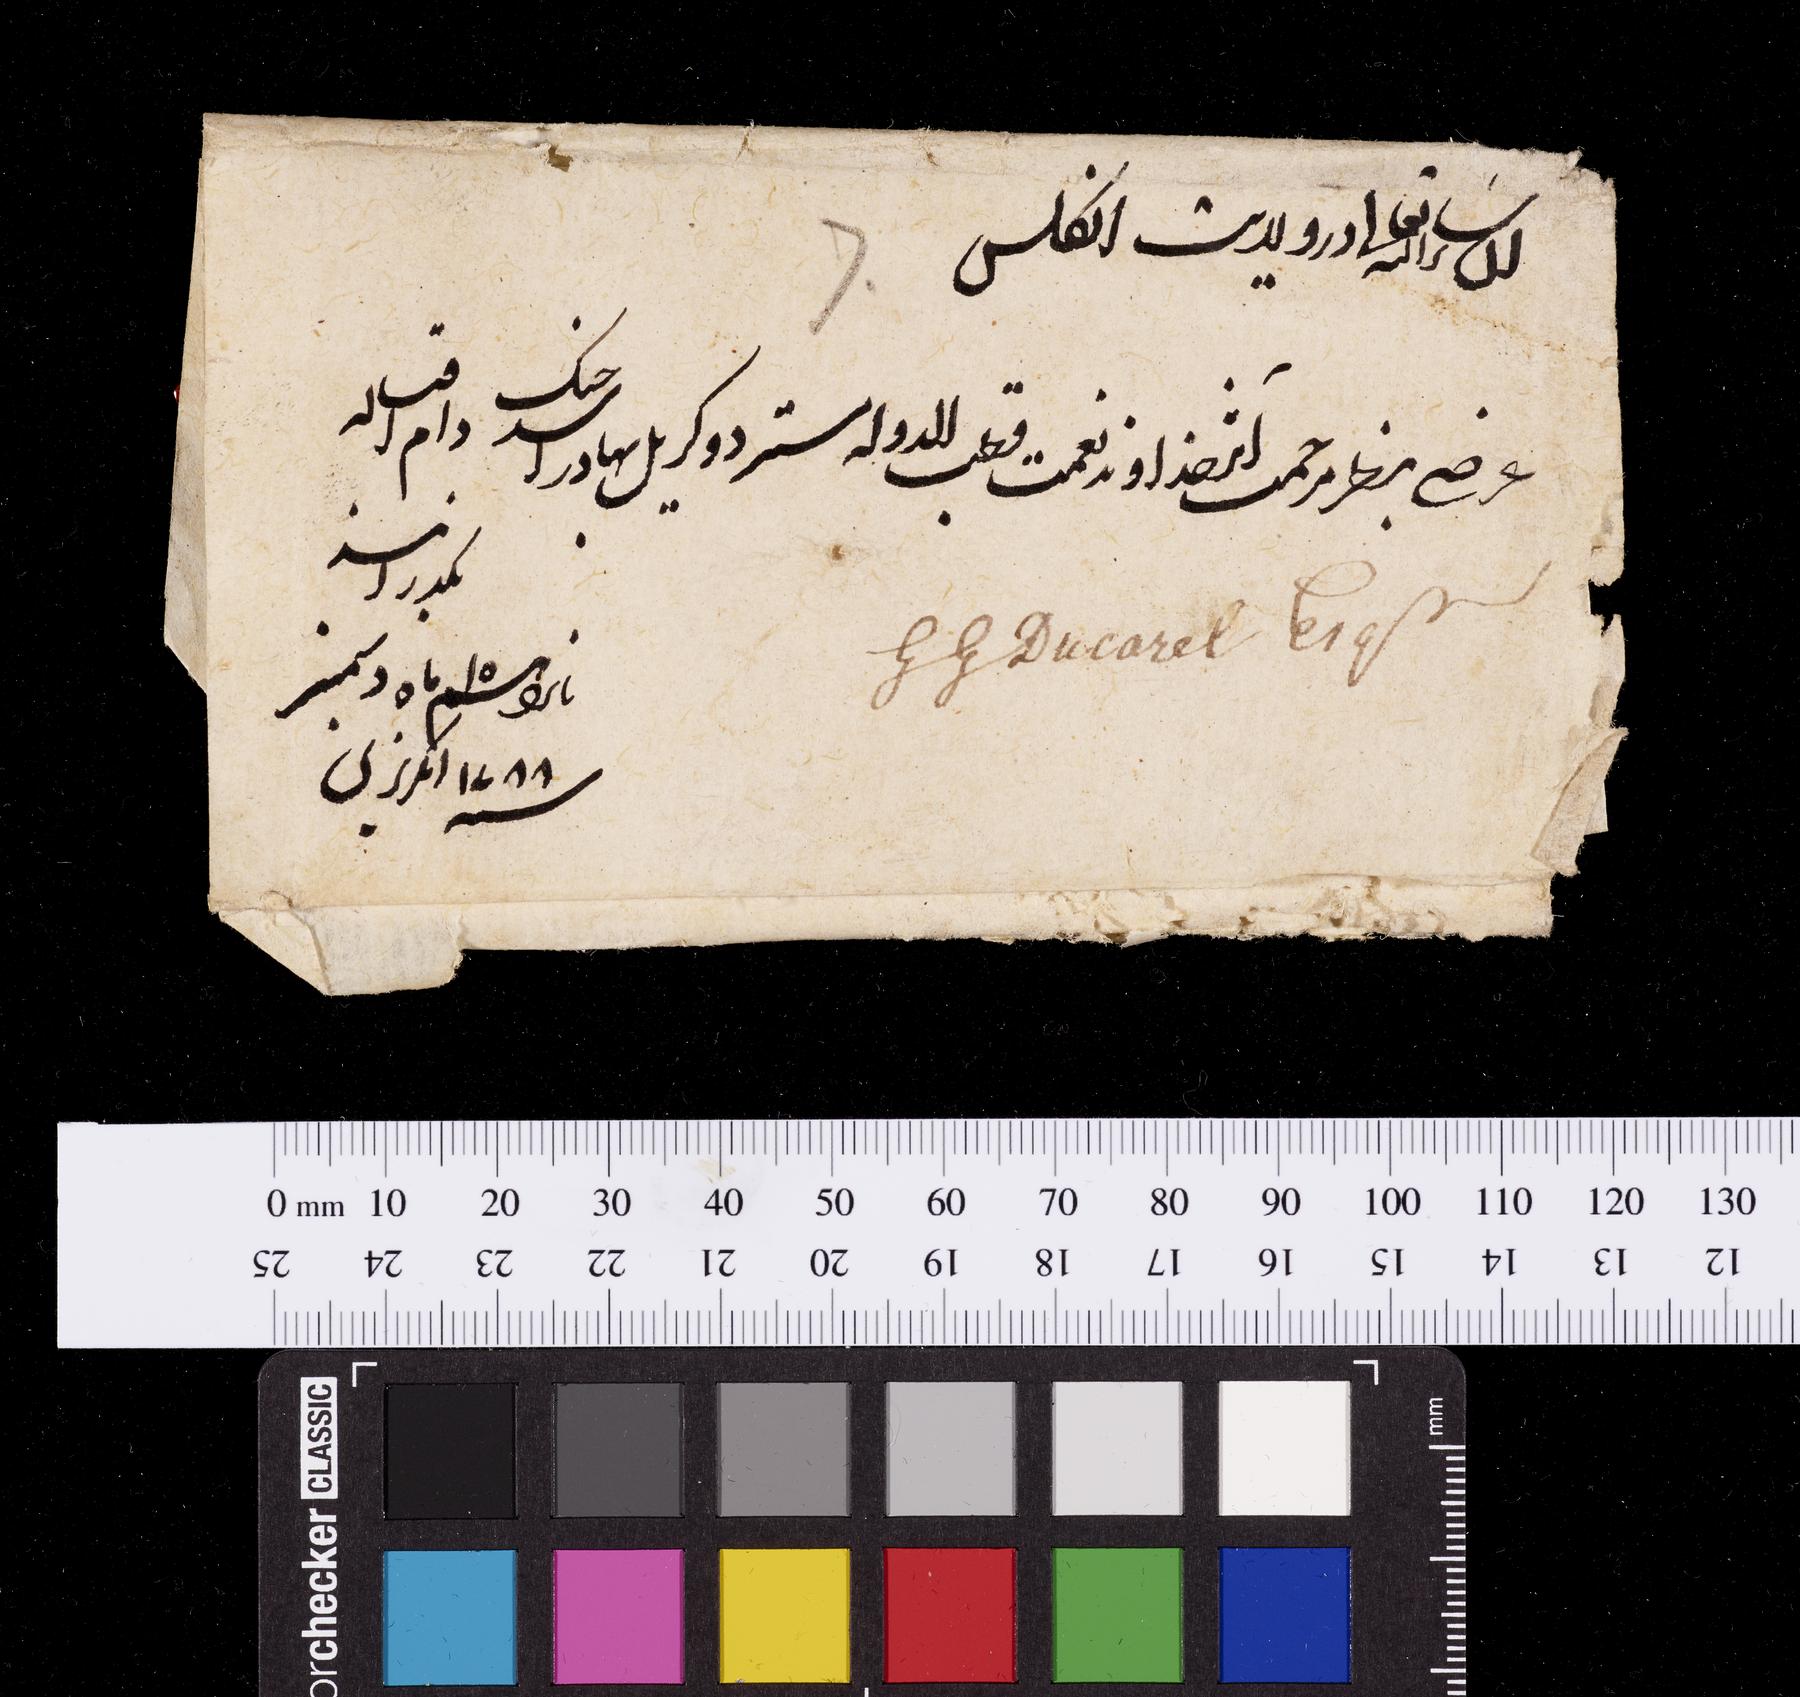 انشا الله تعالی در ولایت انگلس
عرضی بنظر مرحمت اثر خداوند نعمت قطب الدوله مستر دوکریل بهادر اسد جنگ دام اقباله
بگذرانند
G G Ducarel Esqr
ماه دسمبر
سنه ۱۷۸۸ انگریزی
0 mm 10 20 30 40 50 60 70 80 90 100 110 120 130
25 24 23 22 21 20 19 18 17 16 15 14 13 12
orchecker CLASSIC
mm